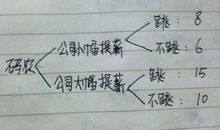 跳：8
公司小幅提薪
不跳：6
码农
跳：15
公司大幅提薪
不跳：10